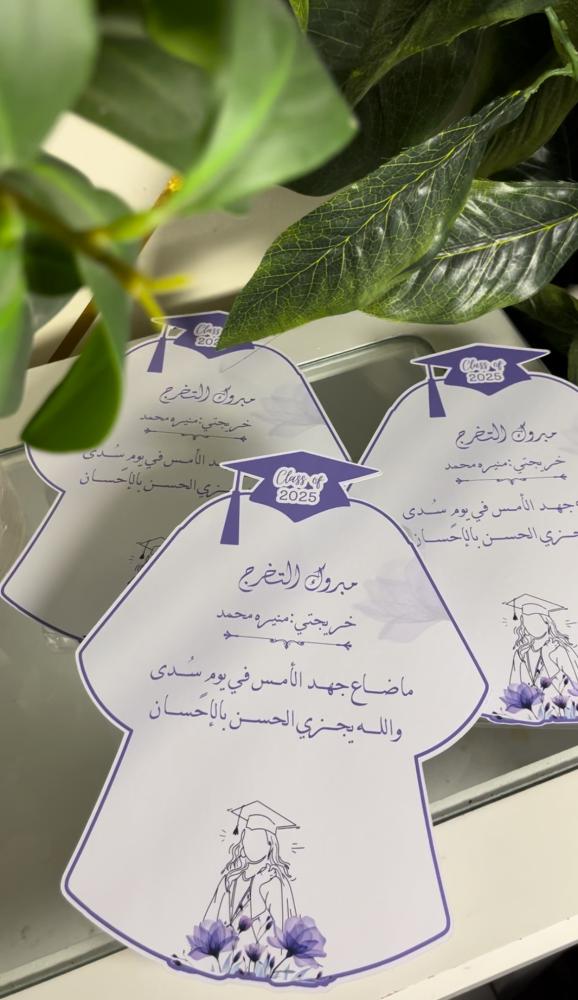 Class of
2025
مبروك التخرج
خريجتي: منيره محمد
ما ضاع جهد الأمس في يوم سُدى
والله يجزي الحسن بالإحسان
Class of
202
مبروك التخرج
خريجتي: منيره محمد
الأمس في يوم سُدى
يجزي الحسن بالإحسان
Class of
2025
مبروك التخرج
خريجتي: منيره محمد
جهد الأمس في يوم سُدى
يجزي الحسن بالإحسان